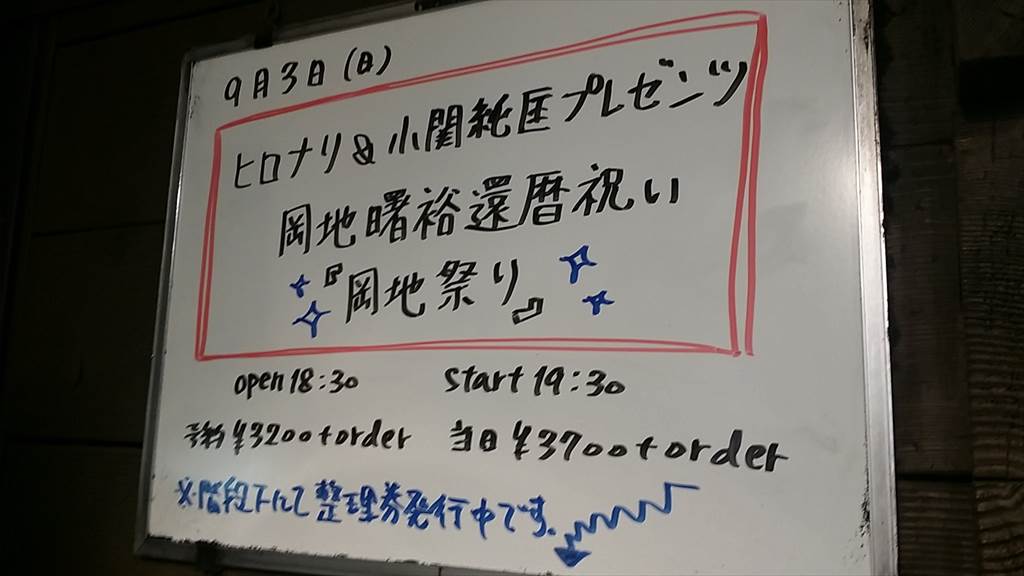 9月3日(日)
ヒロナリ&小関純匡プレゼンツ
岡地曙裕還暦祝い
『岡地祭り』
open 18:30 start 19:30
予約 ¥3200+order 当日 ¥3700+order
※階段下にて整理券発行中です。